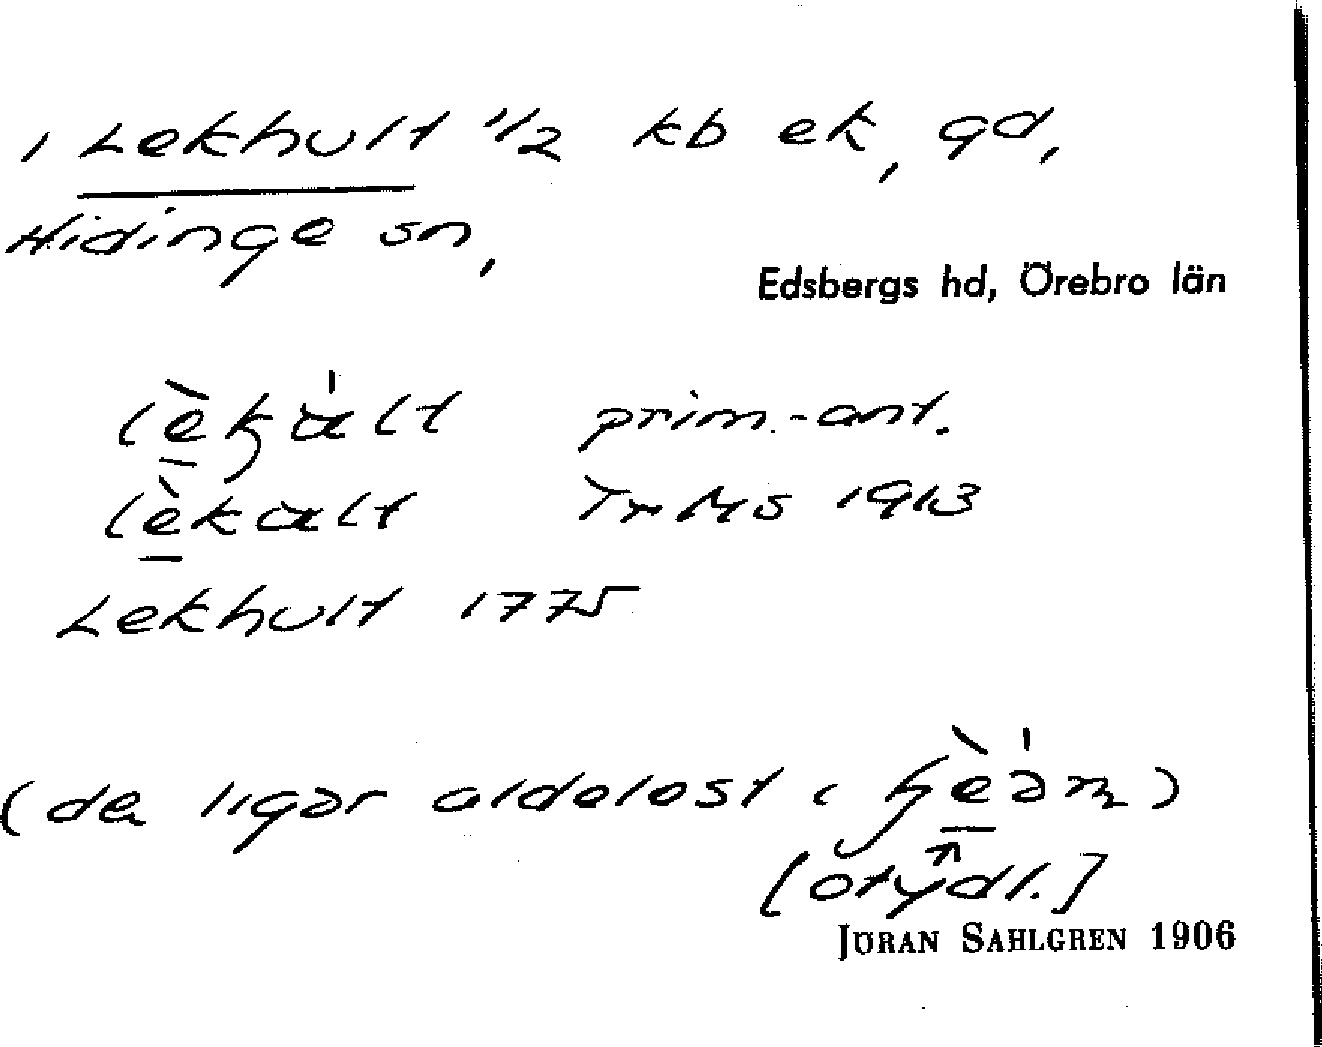 1 Lekhult 1/2 kb ek, gd,
Hidinge sn,
Edsbergs hd, Örebro län
prim.-ant.
1913
Lekhult 1775
(de ligər aldeləst i
[otydl.]
JÖRAN SAHLGREN 1906